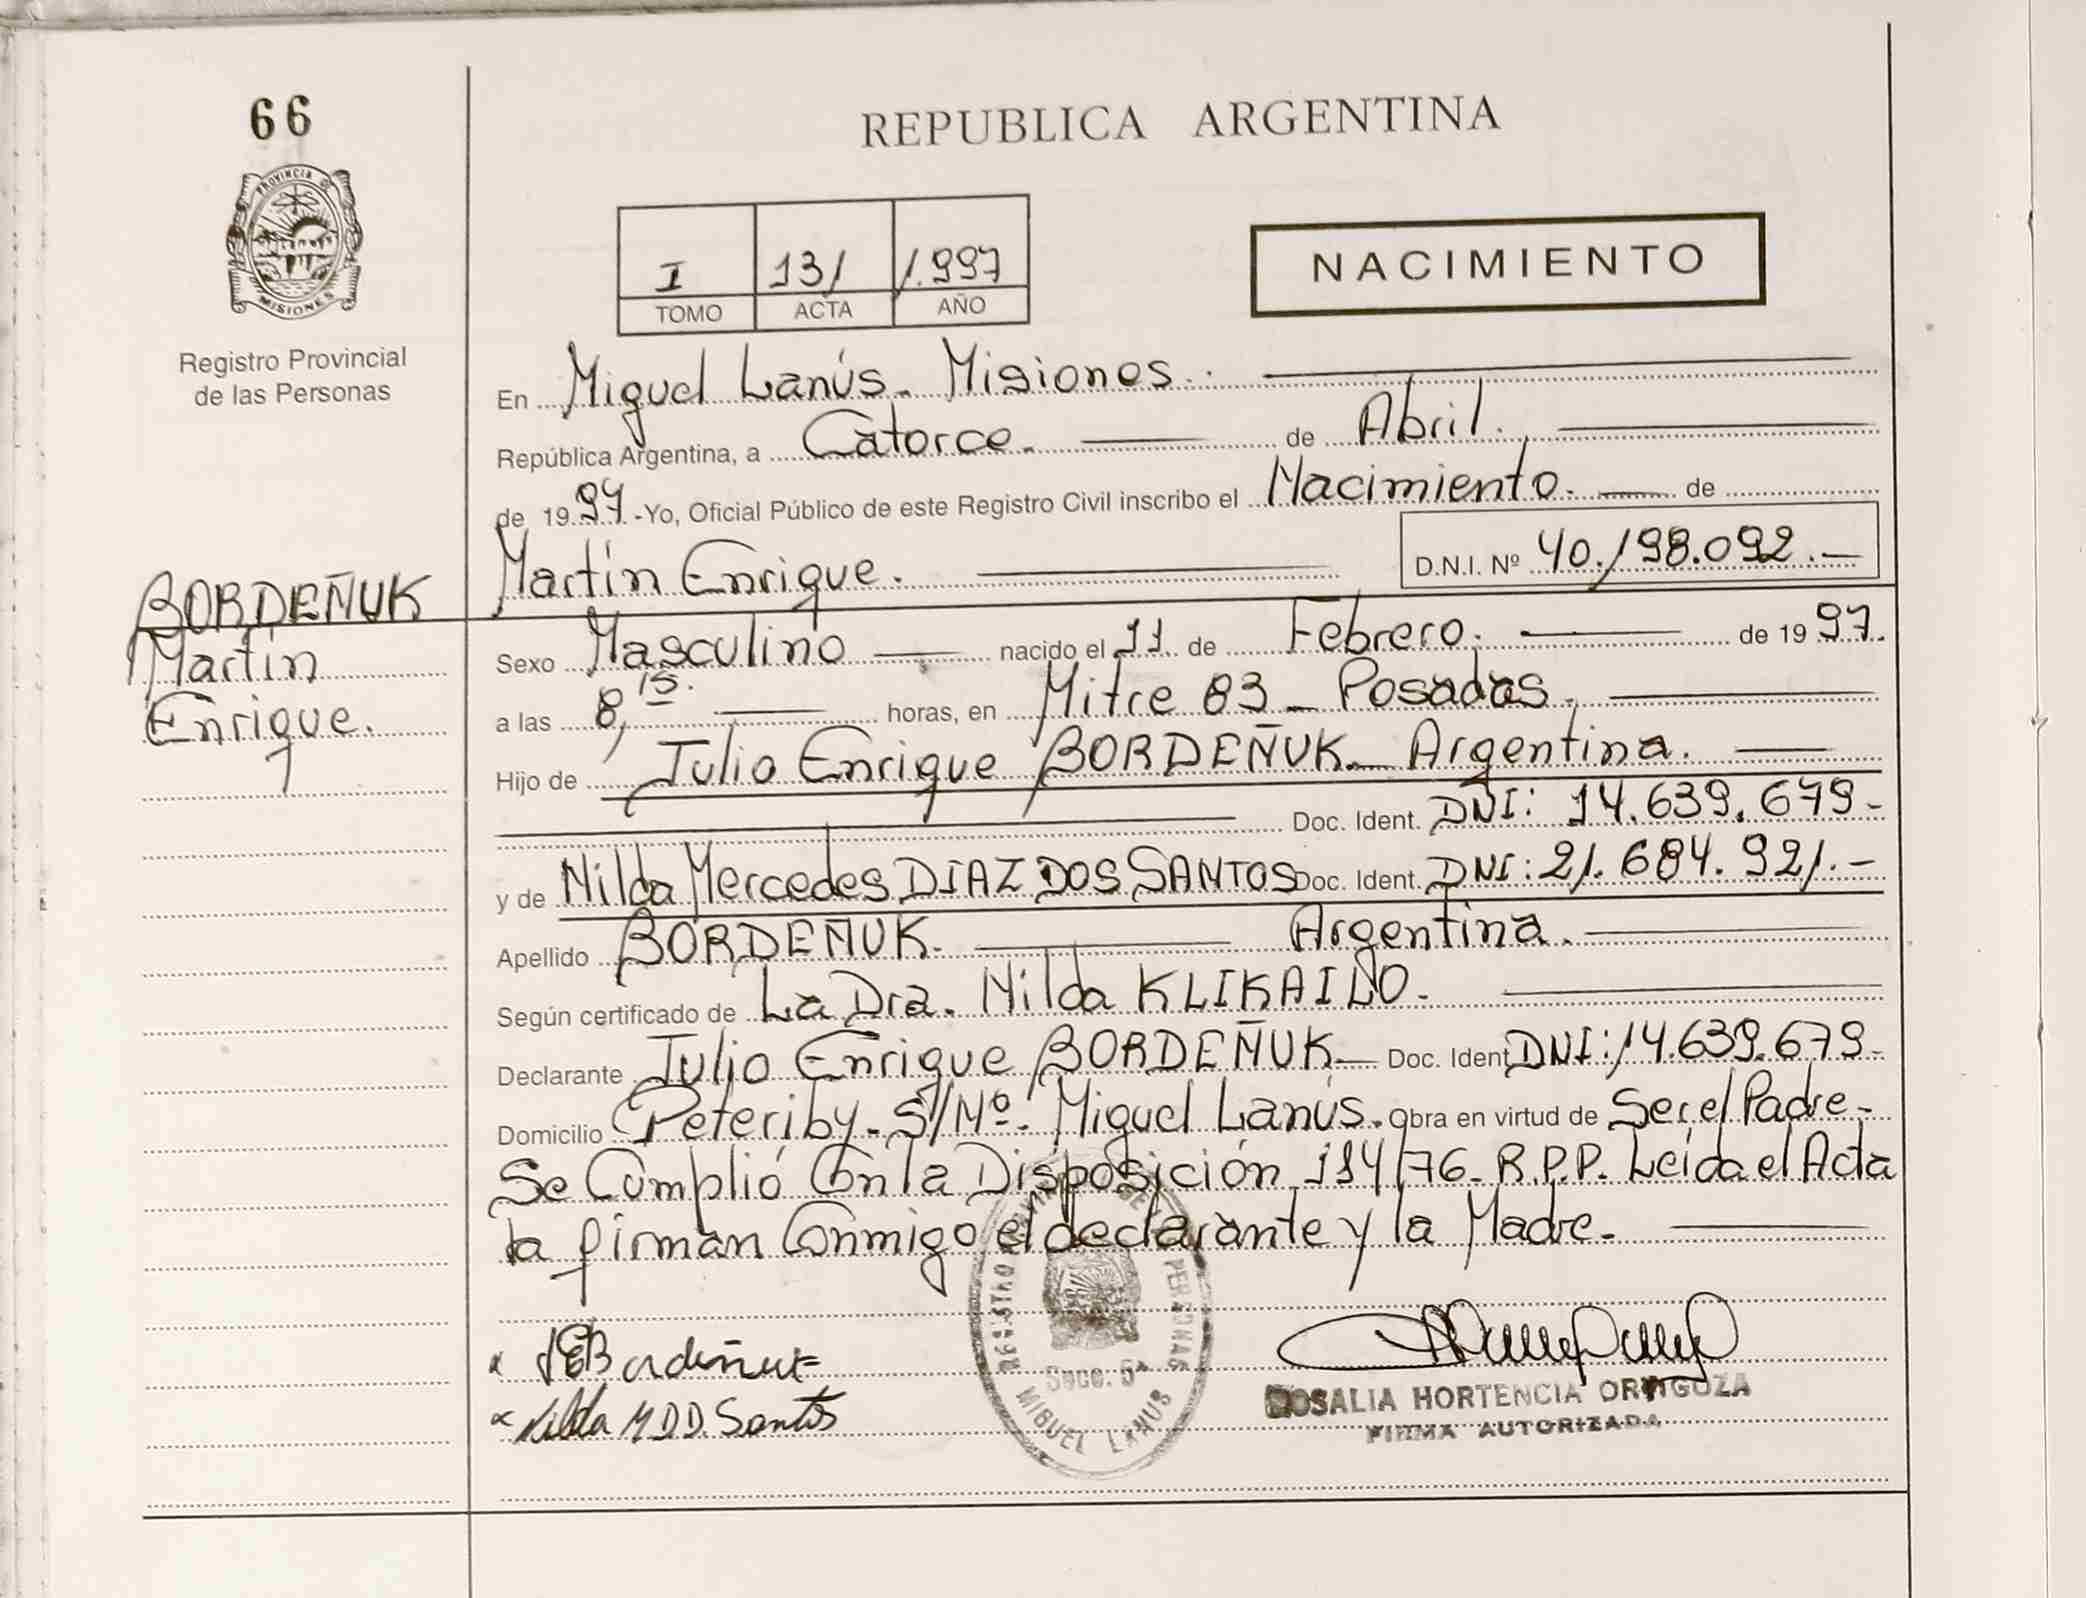 66
REPUBLICA ARGENTINA
PROVINCIA DE
MISIONES
Registro Provincial
de las Personas
I 131 1.997
TOMO ACTA AÑO
NACIMIENTO
En Miguel Lanús. Misiones.
República Argentina, a Catorce. de Abril.
de 1997.-Yo, Oficial Público de este Registro Civil inscribo el Nacimiento. de
Martín Enrique. D.N.I. Nº 40.198.092.-
BORDEÑUK
Martín
Enrique.
Sexo Masculino nacido el 11 de Febrero. de 1997.
a las 8,15. horas, en Mitre 83 - Posadas.
Hijo de Julio Enrique BORDEÑUK. Argentina.
Doc. Ident. DNI: 14.639.679-
y de Nilda Mercedes DIAZ DOS SANTOS Doc. Ident. DNI: 21.684.921.-
Apellido BORDEÑUK. Argentina.
Según certificado de La Dra. Nilda KLIKAILO.
Declarante Julio Enrique BORDEÑUK Doc. Ident DNI: 14.639.679-
Domicilio Peteriby. S/Nº. Miguel Lanús. Obra en virtud de Ser el Padre-
Se Cumplió Con la Disposición 114/76. R.P.P. Leída el Acta
la firman Conmigo el declarante y la Madre.
JEBordeñuk
Nilda M D D. Santos
Secc. 5ª
MIGUEL LANUS
ROSALIA HORTENCIA ORTIGOZA
FIRMA AUTORIZADA